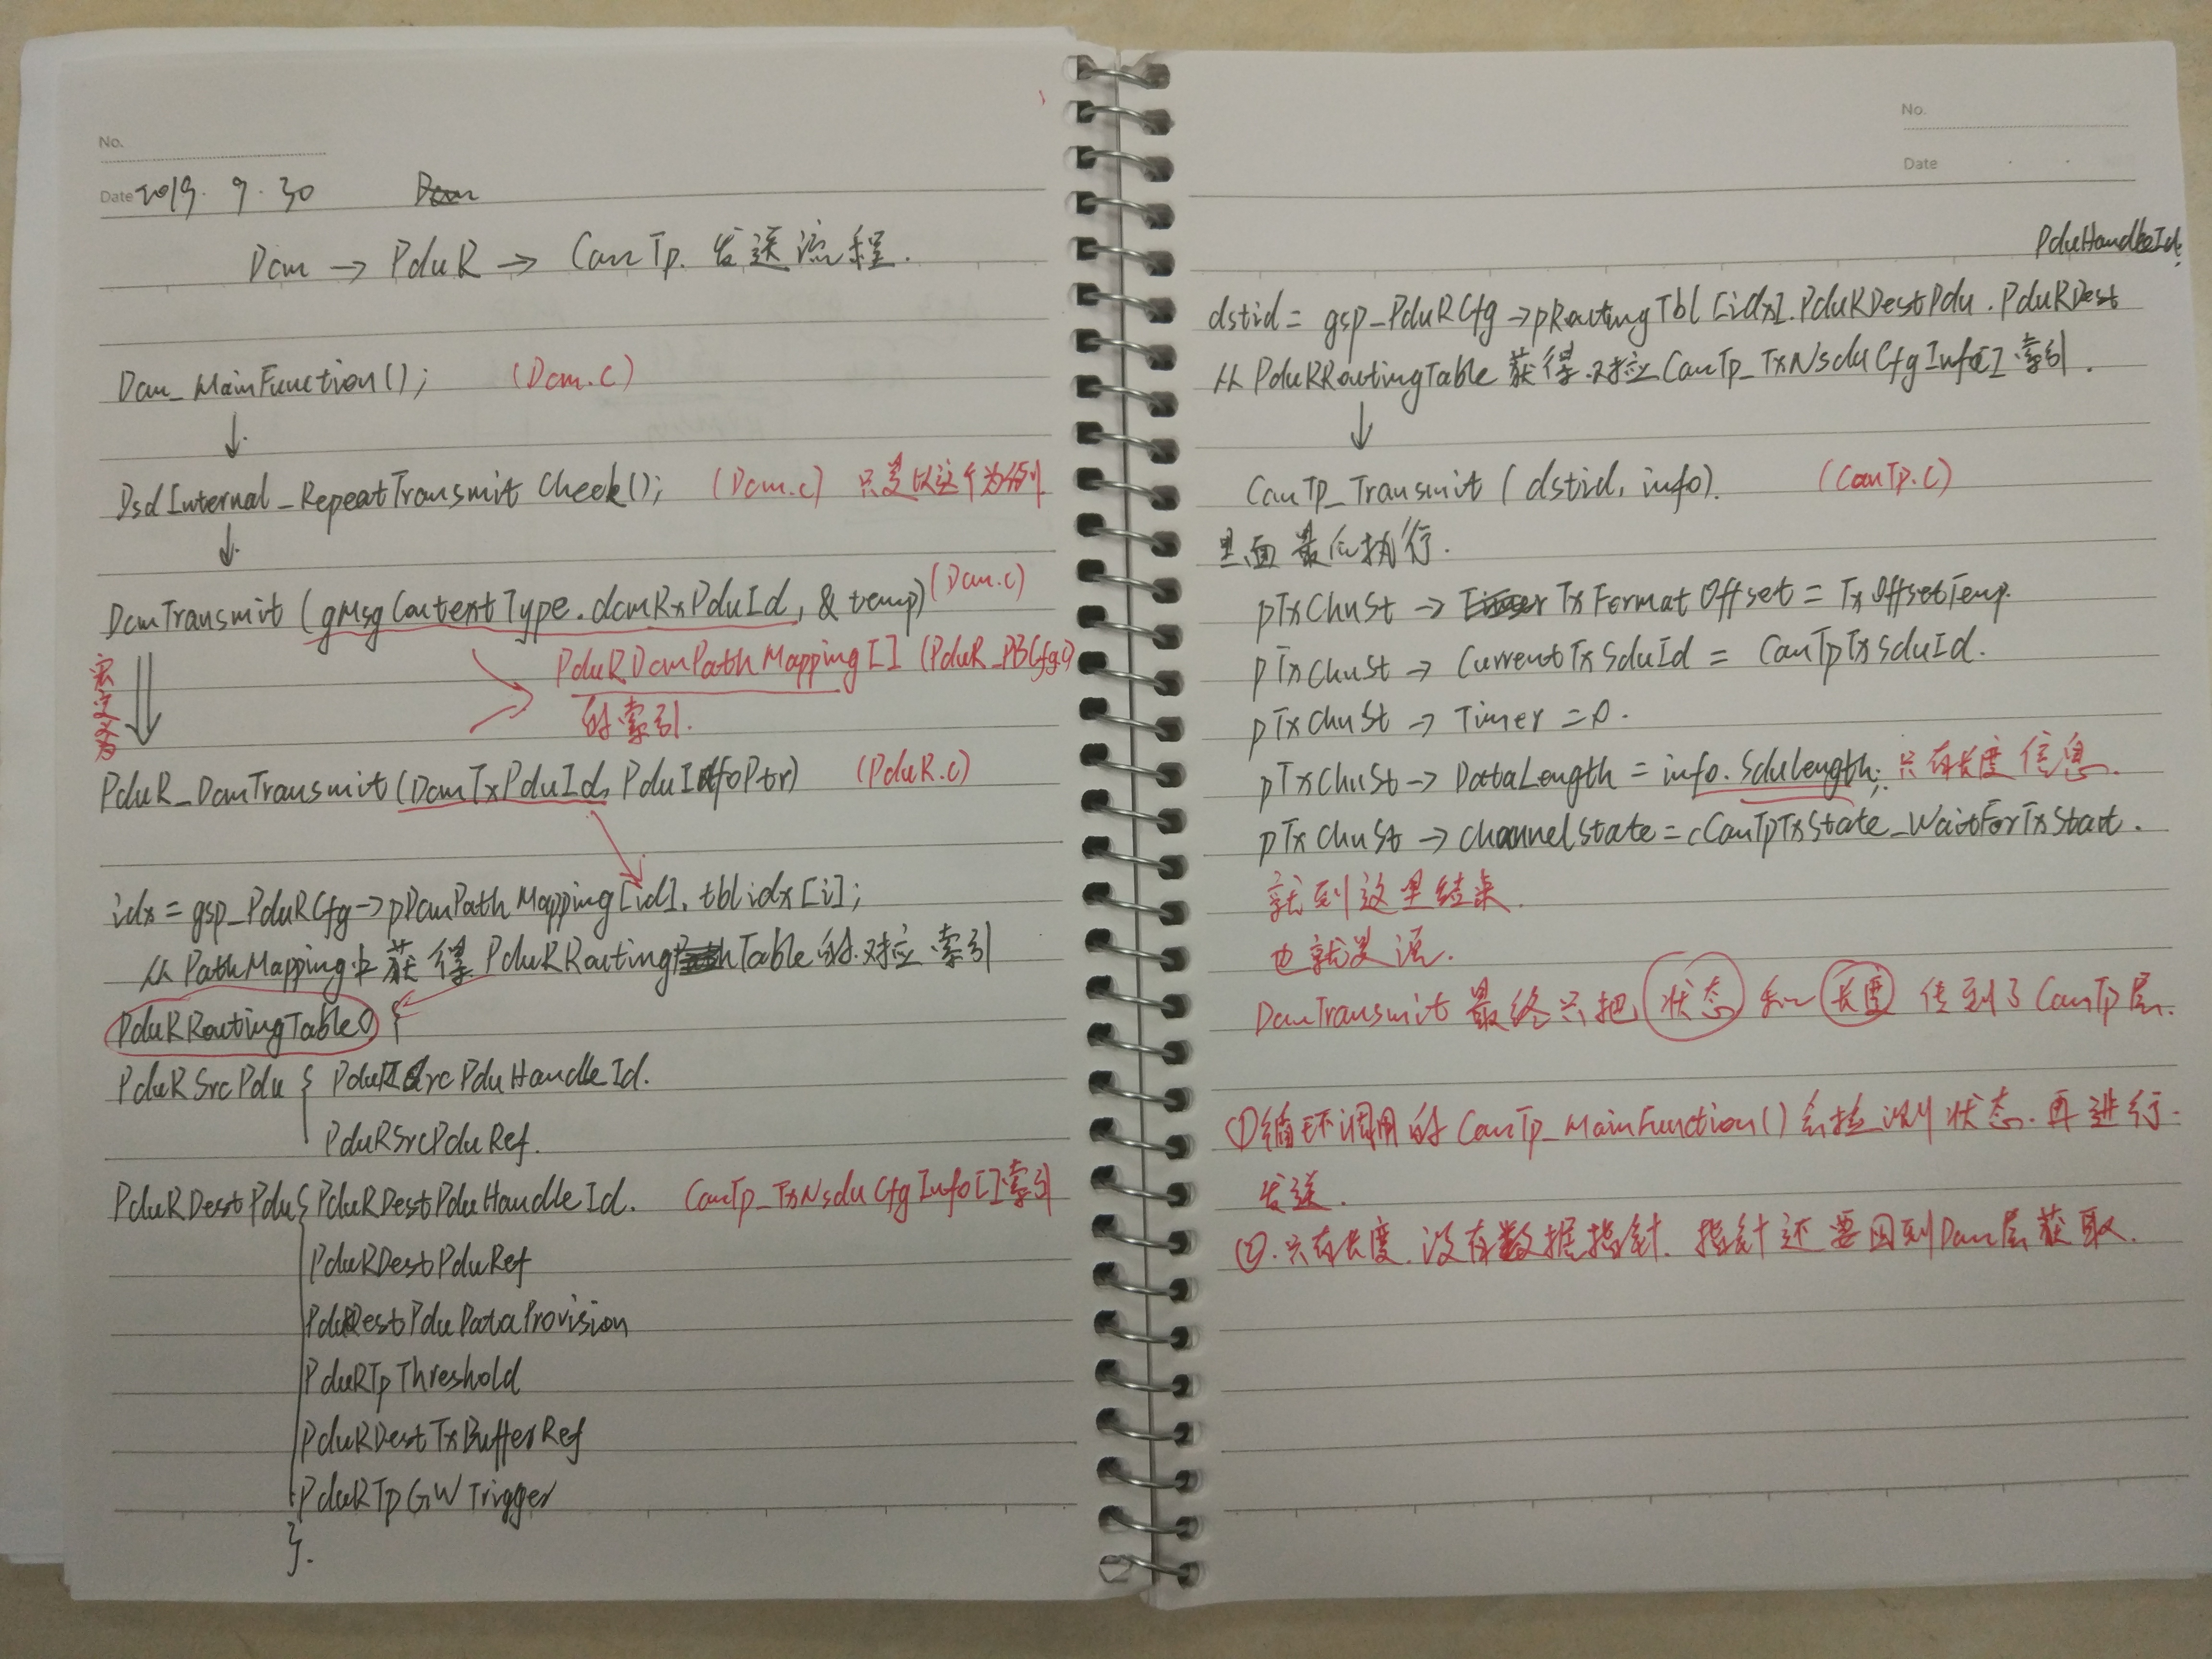 No.
Date 2019. 9. 30
Dcm → PduR → CanTp. 发送流程.
Dcm_MainFunction(); (Dcm.c)
↓
DsdInternal_RepeatTransmitCheck(); (Dcm.c) 只是以这个为例
↓
DcmTransmit (gMsgContextType.dcmRxPduId, & temp) (Dcm.c)
PduRDcmPathMapping[] (PduR_PBCfg.c)
的索引.
宏定义为
PduR_DcmTransmit(DcmTxPduId, PduInfoPtr) (PduR.c)
idx = gsp_PduRCfg->pDcmPathMapping[id].tblidx[i];
从PathMapping中获得 PduRRoutingTable的对应索引
PduRRoutingTable {
PduRSrcPdu { PduRSrcPduHandleId.
PduRSrcPduRef.
PduRDestPdu { PduRDestPduHandleId. CanTp_TxNsduCfgInfo[]索引
PduRDestPduRef
PduRDestPduDataProvision
PduRTpThreshold
PduRDestTxBufferRef
PduRTpGWTrigger
}.
No.
Date
PduHandleId;
dstid = gsp_PduRCfg->pRoutingTbl[idx].PduRDestPdu.PduRDest
从PduRRoutingTable获得对应CanTp_TxNsduCfgInfo[]索引.
↓
CanTp_Transmit (dstid, info). (CanTp.c)
里面最后执行.
pTxChnSt → TxFormatOffset = TxOffsetTemp.
pTxChnSt → CurrentTxSduId = CanTpTxSduId.
pTxChnSt → Timer = 0.
pTxChnSt → DataLength = info.SduLength; 只有长度信息.
pTxChnSt → ChannelState = cCanTpTxState_WaitForTxStart.
就到这里结束.
也就是说.
DcmTransmit最终只把状态和长度传到了CanTp层.
①循环调用的CanTp_MainFunction()会检测状态.再进行
发送.
②.只有长度.没有数据指针.指针还要回到Dcm层获取.